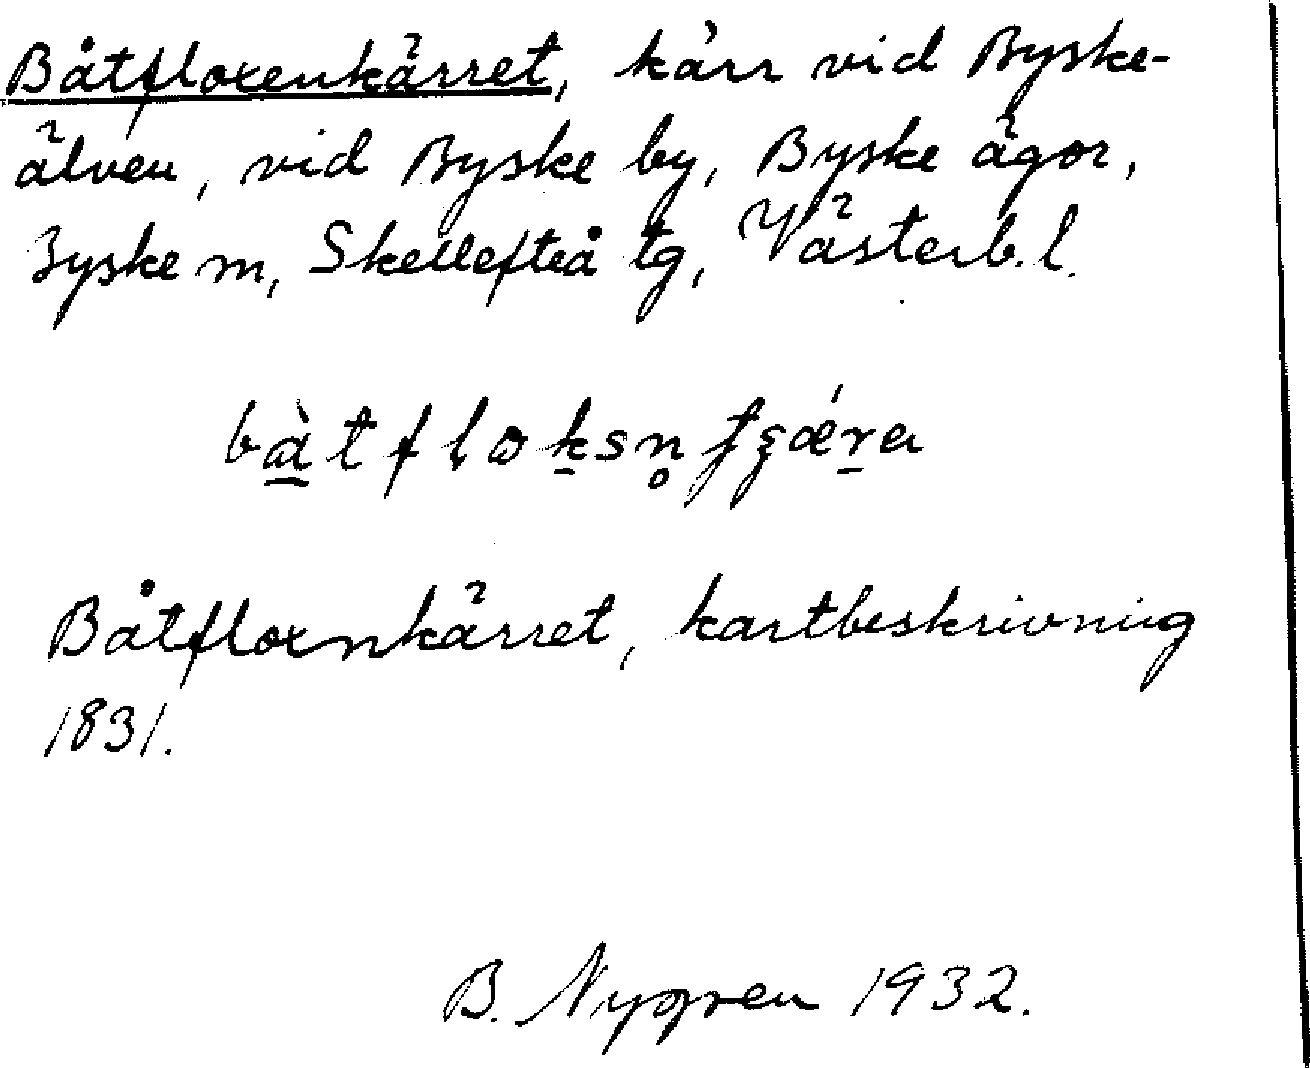 Båtfloxenkärret, kärr vid Byske-
älven, vid Byske by, Byske ägor,
Byske m, Skellefteå tg, Västerb. l.
bà̱tfloḵsn̥ fʂǽṟa
Båtfloxnkärret, kartbeskrivning
1831.
B. Nygren 1932.